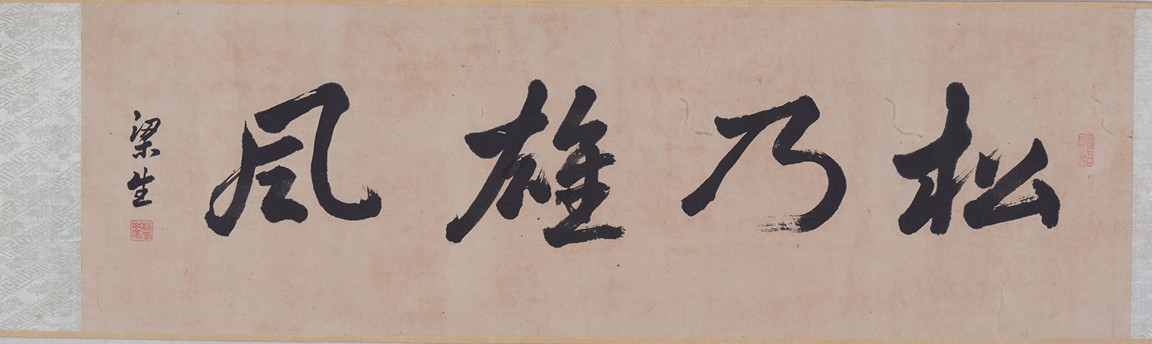 松乃雄風
梁生